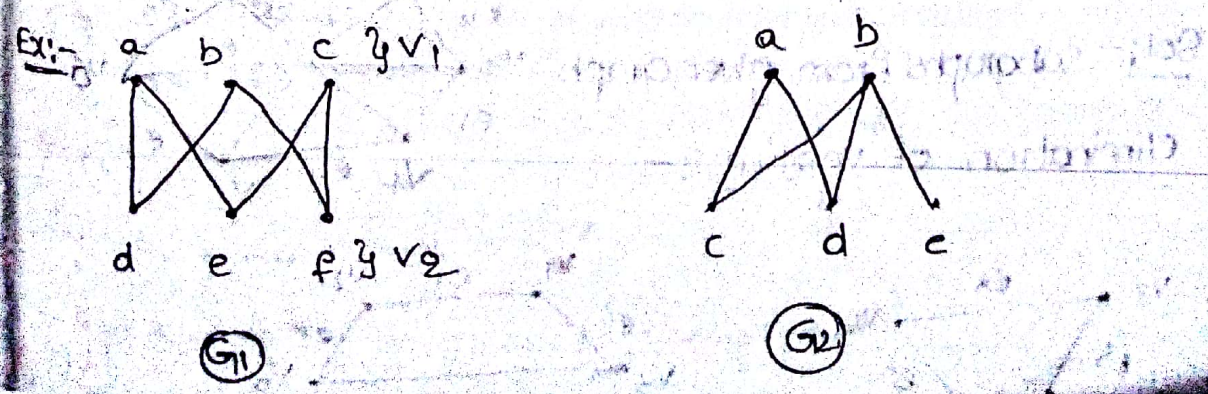 Ex:-
a b c } V1
d e f } V2
G1
a b
c d e
G2